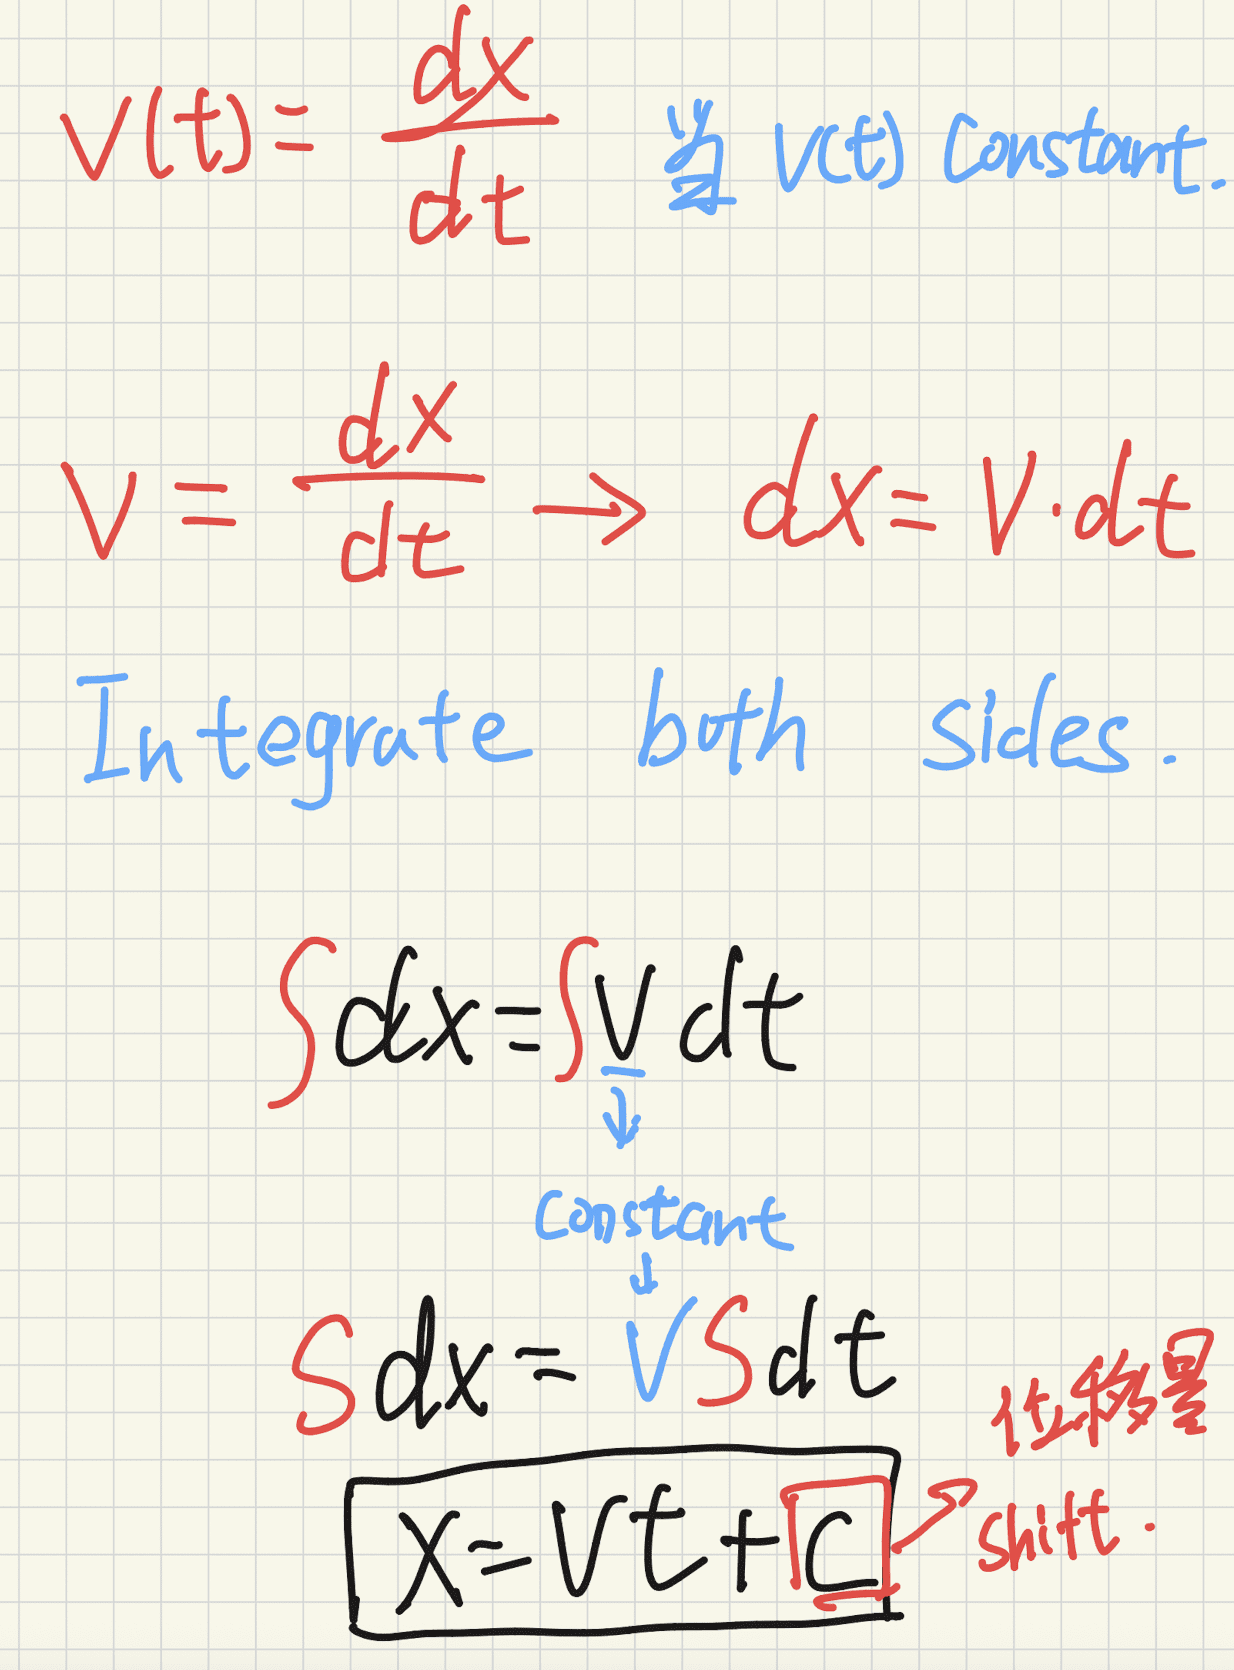 V(t) = dx/dt 当 V(t) Constant.
V = dx/dt → dx = V·dt
Integrate both sides.
∫dx = ∫V dt
↓
Constant
↓
∫dx = V∫dt
位移量
x = Vt + C → shift.